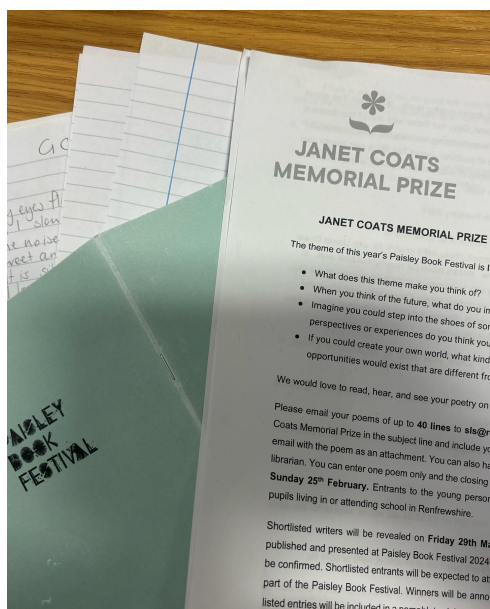 JANET COATS
MEMORIAL PRIZE
JANET COATS MEMORIAL PRIZE
The theme of this year's Paisley Book Festival is
What does this theme make you think of?
When you think of the future, what do you
Imagine you could step into the shoes of
perspectives or experiences do you think you
If you could create your own world, what kind
opportunities would exist that are different
We would love to read, hear, and see your poetry on
Please email your poems of up to 40 lines to
Coats Memorial Prize in the subject line and include
email with the poem as an attachment. You can also
librarian. You can enter one poem only and the closing
Sunday 25th February. Entrants to the young
pupils living in or attending school in Renfrewshire.
Shortlisted writers will be revealed on Friday 29th
published and presented at Paisley Book Festival 2024
be confirmed. Shortlisted entrants will be expected to
part of the Paisley Book Festival. Winners will be
listed entries will be included in a
eyes
noise
PAISLEY
BOOK
FESTIVAL